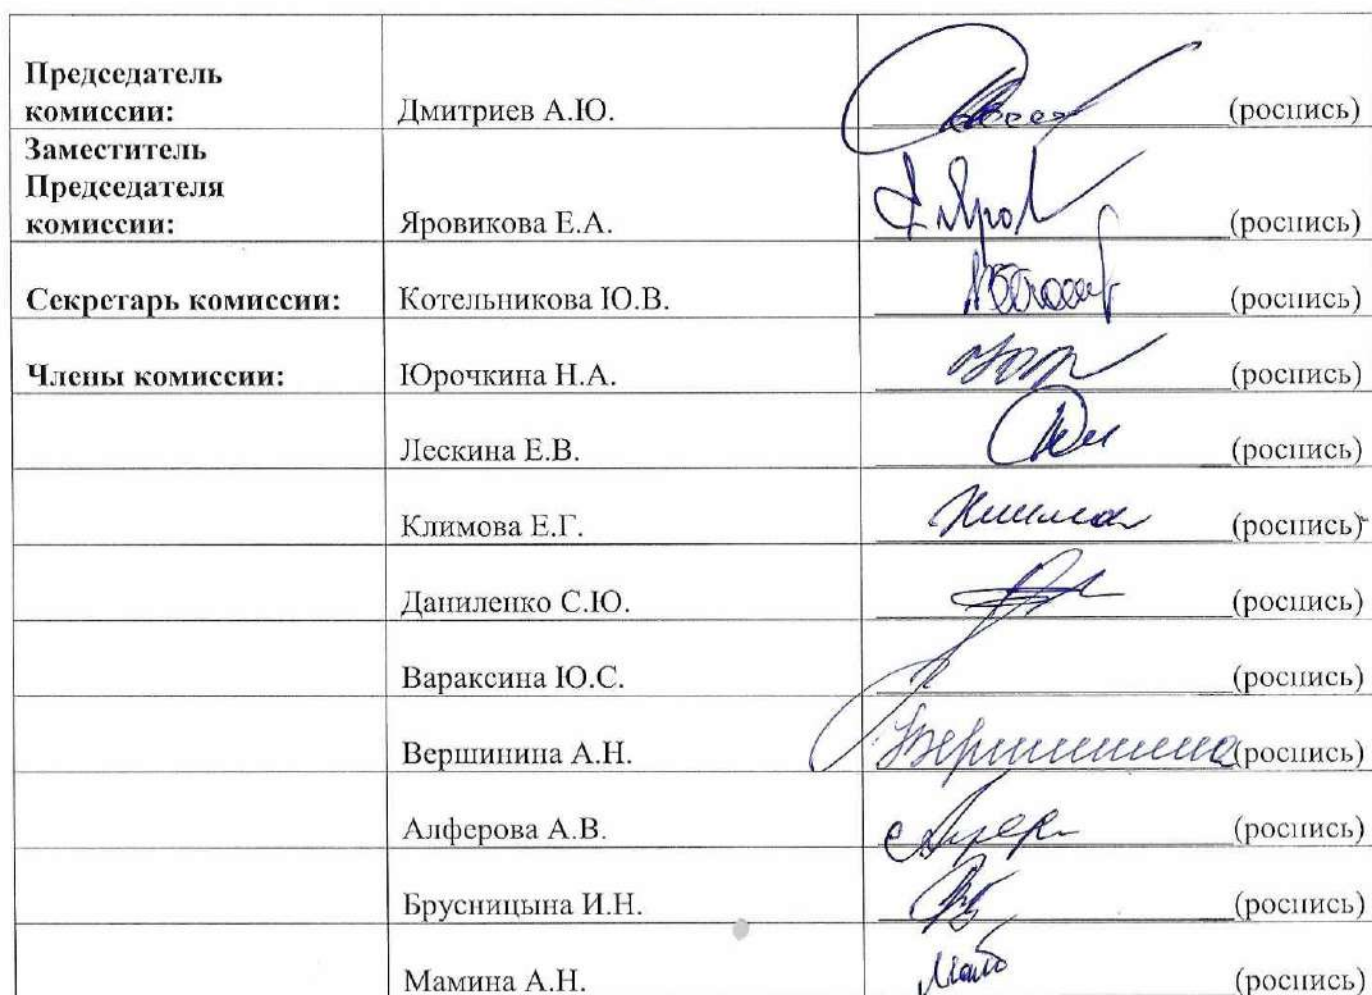 Председатель
комиссии: Дмитриев А.Ю. (роспись)
Заместитель
Председателя
комиссии: Яровикова Е.А. (роспись)
Секретарь комиссии: Котельникова Ю.В. (роспись)
Члены комиссии: Юрочкина Н.А. (роспись)
Лескина Е.В. (роспись)
Климова Е.Г. (роспись)
Даниленко С.Ю. (роспись)
Вараксина Ю.С. (роспись)
Вершинина А.Н. Вершинина (роспись)
Алферова А.В. (роспись)
Брусницына И.Н. (роспись)
Мамина А.Н. (роспись)